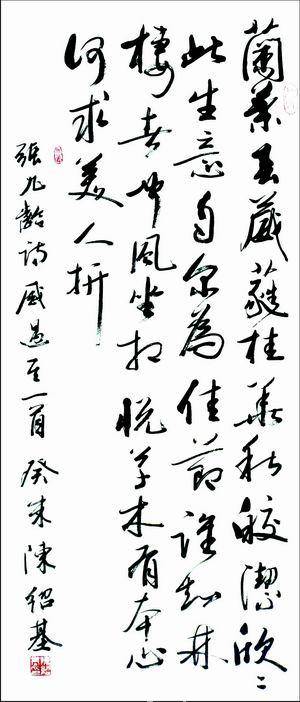 蘭葉春葳蕤桂華秋皎潔欣〻
此生意自尔為佳節誰知林
棲者聞風坐相悦草木有本心
何求美人折
張九齡詩感遇其一首 癸未 陳紹基